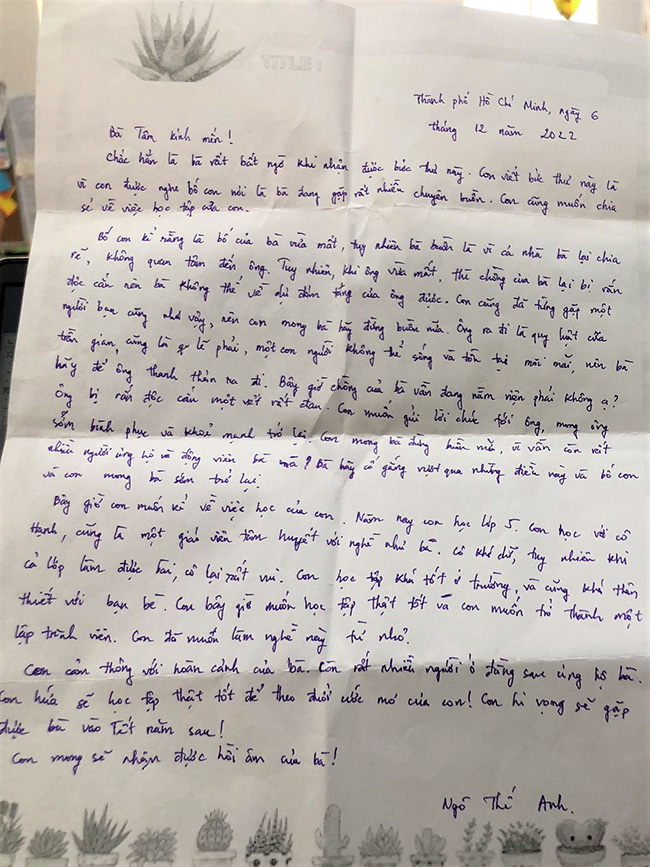 TITLE :
Thành phố Hồ Chí Minh, ngày 6
tháng 12 năm 2022
Bà Tâm kính mến !
Chắc hẳn là bà rất bất ngờ khi nhận được bức thư này. Con viết bức thư này là
vì con được nghe bố con nói là bà đang gặp rất nhiều chuyện buồn. Con cũng muốn chia
sẻ về việc học tập của con.
Bố con kể rằng là bố của bà vừa mất, tuy nhiên bà buồn là vì cả nhà bà lại chia
rẽ, không quan tâm đến ông. Tuy nhiên, khi ông vừa mất, thì chồng của bà lại bị rắn
độc cắn nên bà không thể về dự đám tang của ông được. Con cũng đã từng gặp một
người bạn cũng như vậy, nên con mong bà hãy đừng buồn nữa. Ông ra đi là quy luật của
trần gian, cũng là lẽ phải, một con người không thể sống và tồn tại mãi mãi, nên bà
hãy để ông thanh thản ra đi. Bây giờ chồng của bà vẫn đang nằm viện phải không ạ?
Ông bị rắn độc cắn một vết rất đau. Con muốn gửi lời chúc tới ông, mong ông
sớm bình phục và khoẻ mạnh trở lại. Con mong bà đừng buồn nữa, vì vẫn còn rất
nhiều người ủng hộ và động viên bà mà? Bà hãy cố gắng vượt qua những điều này và bố con
và con mong bà sớm trở lại.
Bây giờ con muốn kể về việc học của con. Năm nay con học lớp 5. Con học với cô
Hạnh, cũng là một giáo viên tâm huyết với nghề như bà. Cô khá dữ, tuy nhiên khi
cả lớp làm được bài, cô lại rất vui. Con học tập khá tốt ở trường, và cũng khá thân
thiết với bạn bè. Con bây giờ muốn học tập thật tốt và con muốn trở thành một
lập trình viên. Con đã muốn làm nghề này từ nhỏ.
Con cảm thông với hoàn cảnh của bà. Còn rất nhiều người ở đằng sau ủng hộ bà.
Con hứa sẽ học tập thật tốt để theo đuổi ước mơ của con! Con hi vọng sẽ gặp
được bà vào Tết năm sau!
Con mong sẽ nhận được hồi âm của bà!
Ngô Thế Anh.